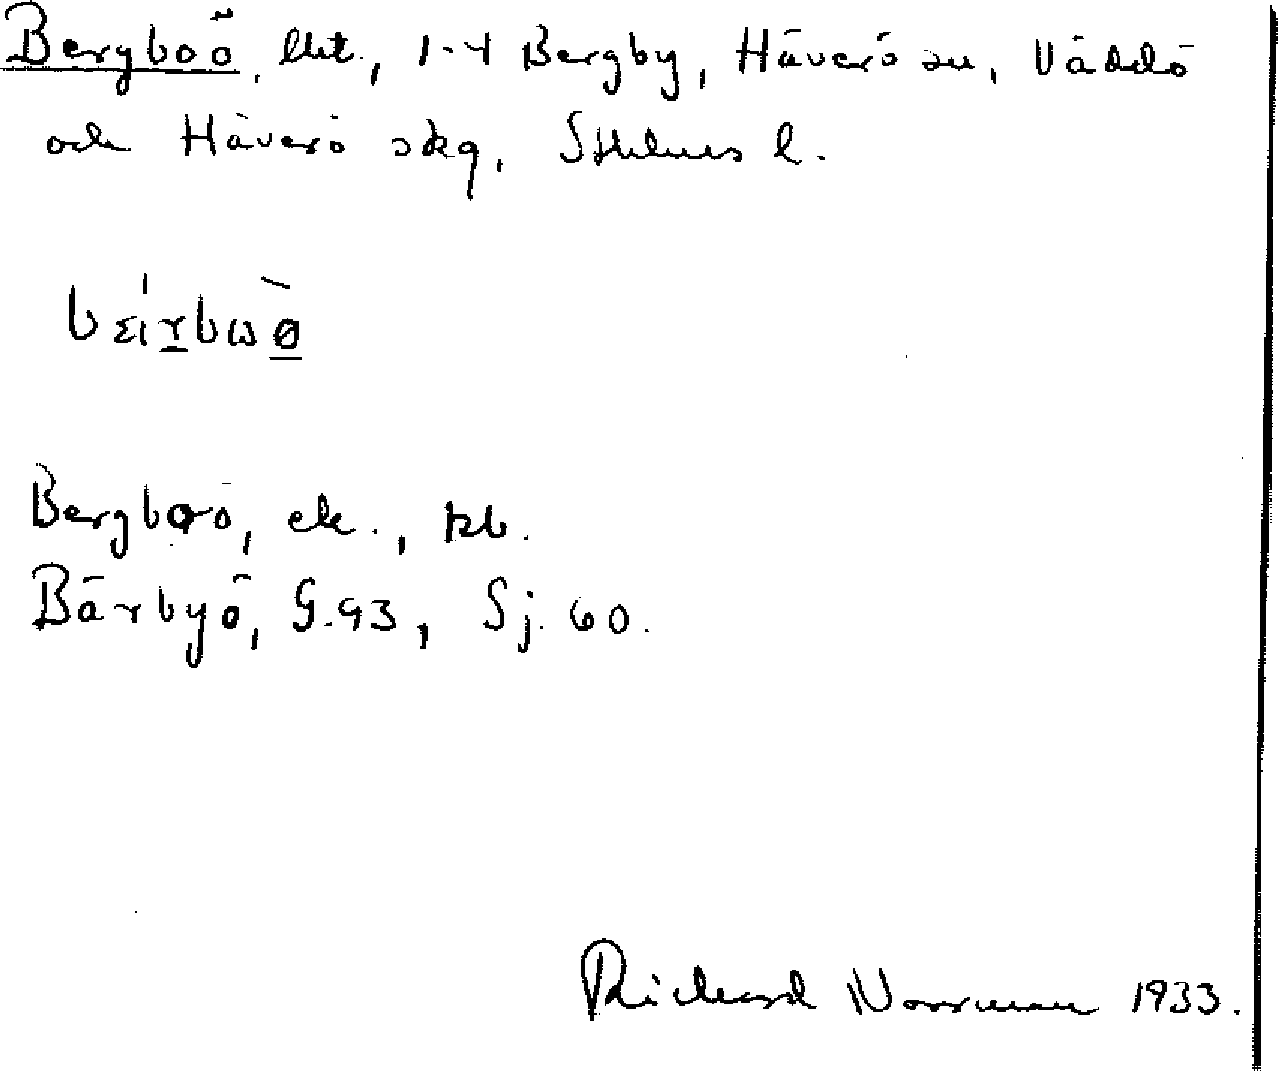 Bergboö, lht., 1-4 Bergby, Häverö sn, Väddö
och Häverö skg, Sthlms l.
Bergboö, ek., kb.
Bärbyö, G.93, Sj. 60.
Richard Norrman 1933.